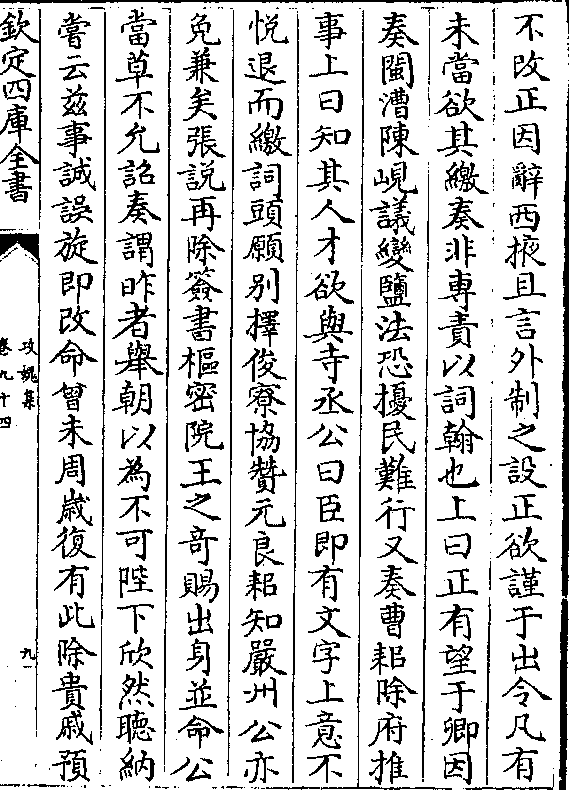 不改正因辭西掖且言外制之設正欲謹于出令凡有
未當欲其繳奏非專責以詞翰也上曰正有望于卿因
奏閩漕陳峴議變鹽法恐擾民難行又奏曹耜除府推
事上曰知其人才欲與寺丞公曰臣即有文字上意不
悦退而繳詞頭願别擇俊寮協贊元良耜知嚴州公亦
免兼矣張說再除簽書樞密院王之竒賜出身並命公
當草不允詔奏謂昨者舉朝以為不可陛下欣然聽納
嘗云兹事誠誤旋即改命曾未周歲復有此除貴戚預
欽定四庫全書
攻媿集
卷九十四
九